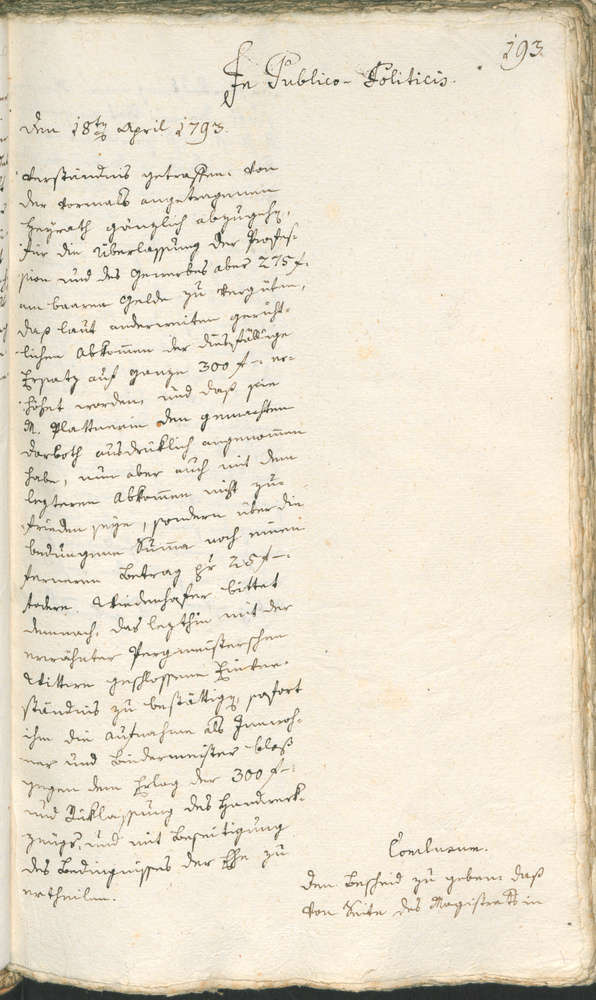 193.
In Publico-Politicis.
den 18ten April 1793.
verständnis getroffen: von
der vormals angetragenen
Heyrath gänzlich abzugehen,
für die Überlassung der Profes-
sion und des Gewerbes aber 275 f:
am baaren Gelde zu vergüten,
daß laut anderweiten gericht-
lichen Abkommen der diesfällige
Ersatz auf ganze 300 f -: er-
höhet worden: und daß sie
M. Plattnerin den gemachten
Anboth ausdrücklich angenommen
habe, nun aber auch mit dem
lezteren Abkommen nicht zu-
frieden seye, sondern über die
bedungene Suma noch einen
ferneren Betrag pr 25 f -:
fodere. Wiedenhofer bittet
demnach, das lezthin mit der
erwähnter Pergmeisterschen
Wittwe geschlossene Einver-
ständnis zu bestättigen, sofort
ihm die Aufnahme als Innwoh-
ner und Bindermeister blos
gegen dem Erlag der 300 f -:
und Rüklassung des Handwerk-
zeugs, und mit Beseitigung
des Bedingnisses der Ehe zu
ertheilen.
Conclusum.
den Bescheid zu geben: daß
von Seite des Magistrats in